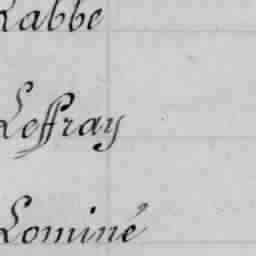 Labbe
Leffray
Lominé